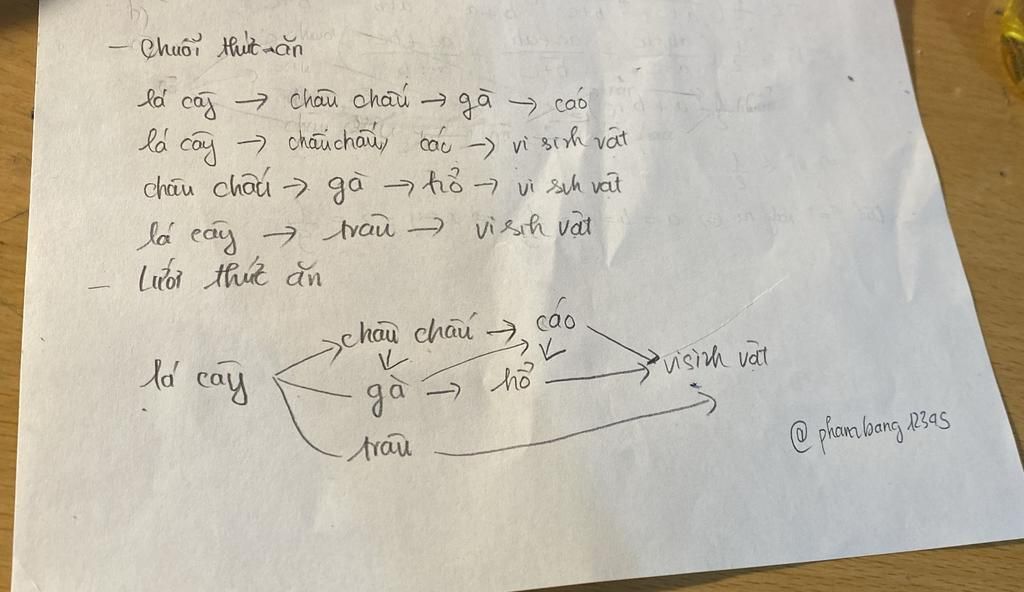 - Chuỗi thức ăn
lá cây → châu chấu → gà → cáo
lá cây → châu chấu, cáo → vi sinh vật
châu chấu → gà → hổ → vi sinh vật
lá cây → trâu → vi sinh vật
- Lưới thức ăn
châu chấu → cáo
lá cây gà → hổ vi sinh vật
trâu
@phambang12345